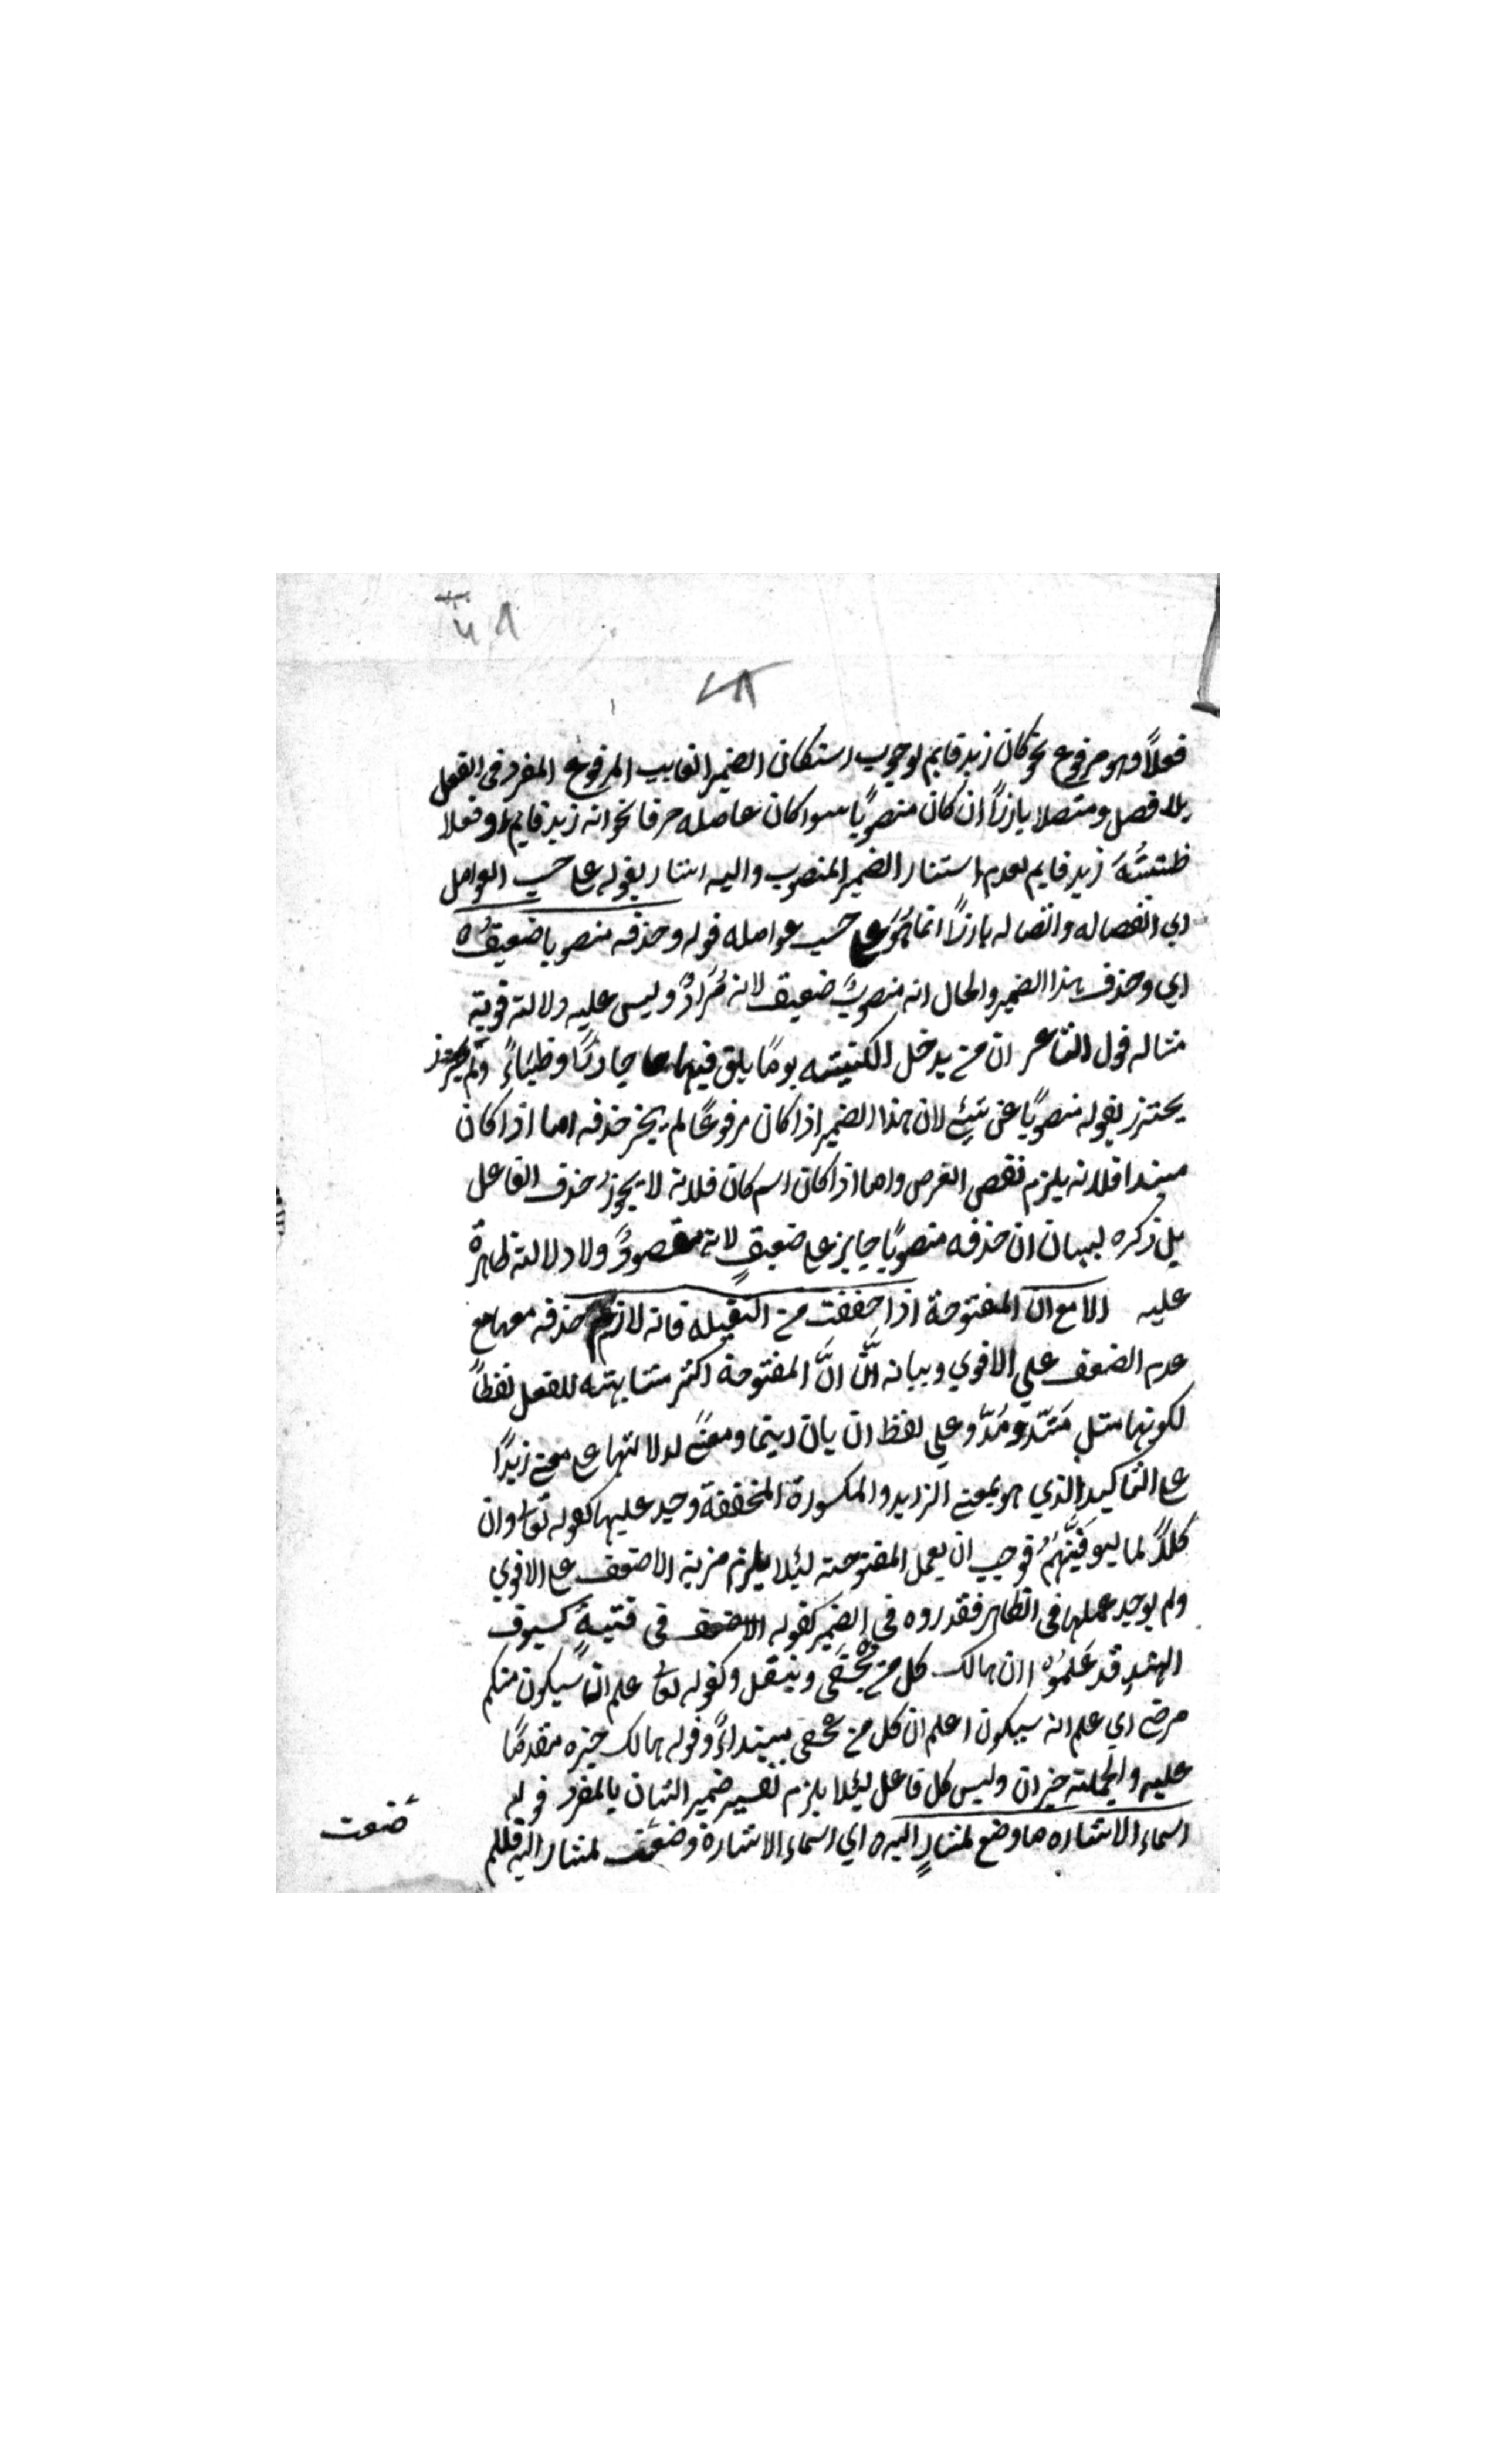 ٤٨
٤٨
فعلاً وهو مرفوع نحو كان زيد قايم لوجوب استكنان الضمير الغايب المرفوع المفرد في الفعل
بلا فصل ومتصلا بارزاً ان كان منصوباً سواكان عامله حرفا نحو انه زيد قايم او فعلا
ظننته زيد قايم لعدم استتار الضمير المنصوب واليه اشار بقوله على حسب العوامل
اي انفصاله واتصاله بارزاً انما هُوَ على حسب عوامله قوله وحذفه منصوبا ضعيفٌ ه
اي وحذف هذا الضمير والحال انه منصوبٌ ضعيف لانه مُرَادٌ وليس عليه دلالته قوية
مثاله قول الشاعر ان من يدخل الكنيسه يومًا يلق فيها جاذرًا وظبَاءً ولم
يحترز بقوله منصوبًا عن شيئ لان هذا الضمير اذا كان مرفوعًا لم يجز حذفه اما اذا كان
مبتدا فلانه يلزم نقص الغرض واما اذا كان اسم كان فلانه لا يجوزُ حذف الفاعل
بل ذكره لبيان ان حذفه منصوبًا جايز على ضعيفٍ لانه مقصودٌ ولا دلالته ظاهرة
عليه الا مع ان المفتوحة اذا خففت من الثقيله فانه لازم حذفه معها مع
عدم الضعف علي الاقوي وبيانه انَّ انَّ المفتوحة اكثر مشابهته للفعل لفظاً
لكونها مثل شَدَّ ومُدَّ وعلي لفظ ان يان اينا ومعنًى لدلالتها على معنى زيدًا
على التاكيد الذي هو بمعنى الزايد والمكسورة المخففة وجد عليها كقوله تعالى وان
كلاً لما ليوفينَّهُم فوجب ان يعمل المفتوحته ليلا يلزم مزية الاضعف على الاقوي
ولم يوجد عملها في الظاهر فقدروه في الضمير كقوله في فتيةٍ كسيوف
الهند قد علموُا ان هالك كل من يَحْفَى وينتعل وكقوله تعالى علم ان سيكون منكم
مرضى اي علم انه سيكون اعلم ان كل من يحفى مبتداءً وقوله هالك خبره مقدمًا
عليه والجملته خبر ان وليس كل فاعل ليلا يلزم تفسير ضمير الشان بالمفرد قوله
اسماء الاشاره ما وضع لمشارٍ اليه ه اي اسماء الاشارة وضعت لمشار اليه فلم
ضعت